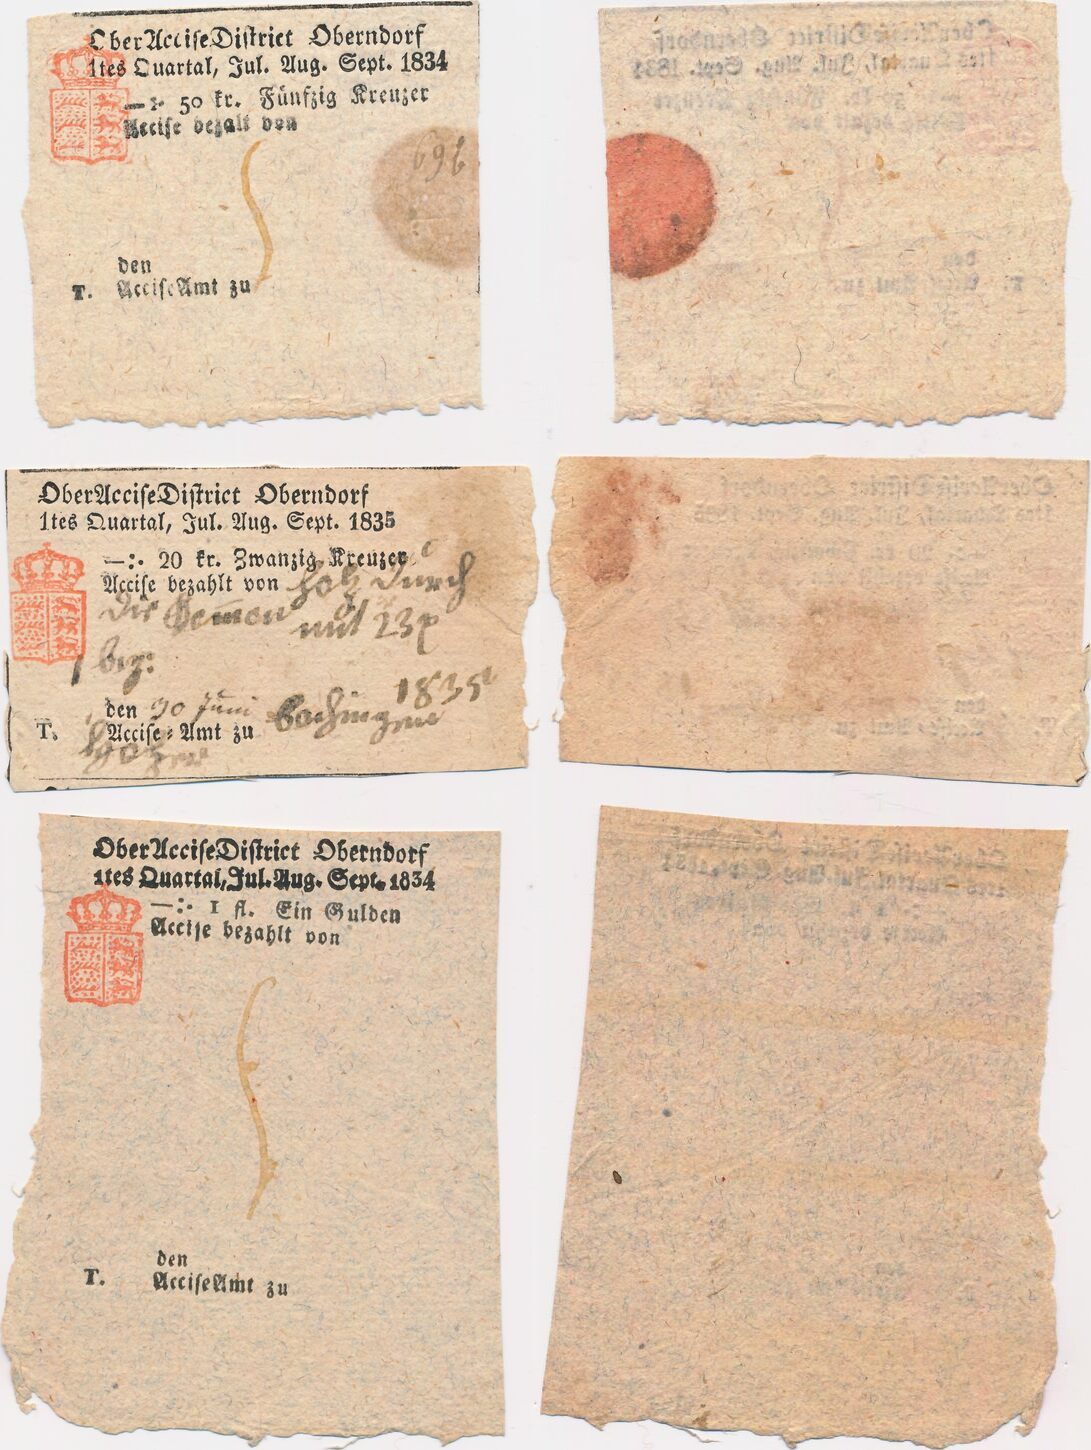 OberAcciseDistrict Oberndorf
1tes Quartal, Jul. Aug. Sept. 1834
—:· 50 kr. Fünfzig Kreuzer
Accise bezalt von
696
den
T. AcciseAmt zu
OberAcciseDistrict Oberndorf
1tes Quartal, Jul. Aug. Sept. 1835
—:· 20 kr. Zwanzig Kreuzer
Accise bezahlt von Holz durch
die mit 23
bez:
1835
den 30 Juni
T. Accise-Amt zu
OberAcciseDistrict Oberndorf
1tes Quartal, Jul. Aug. Sept. 1834
—:· 1 fl. Ein Gulden
Accise bezahlt von
den
T. AcciseAmt zu